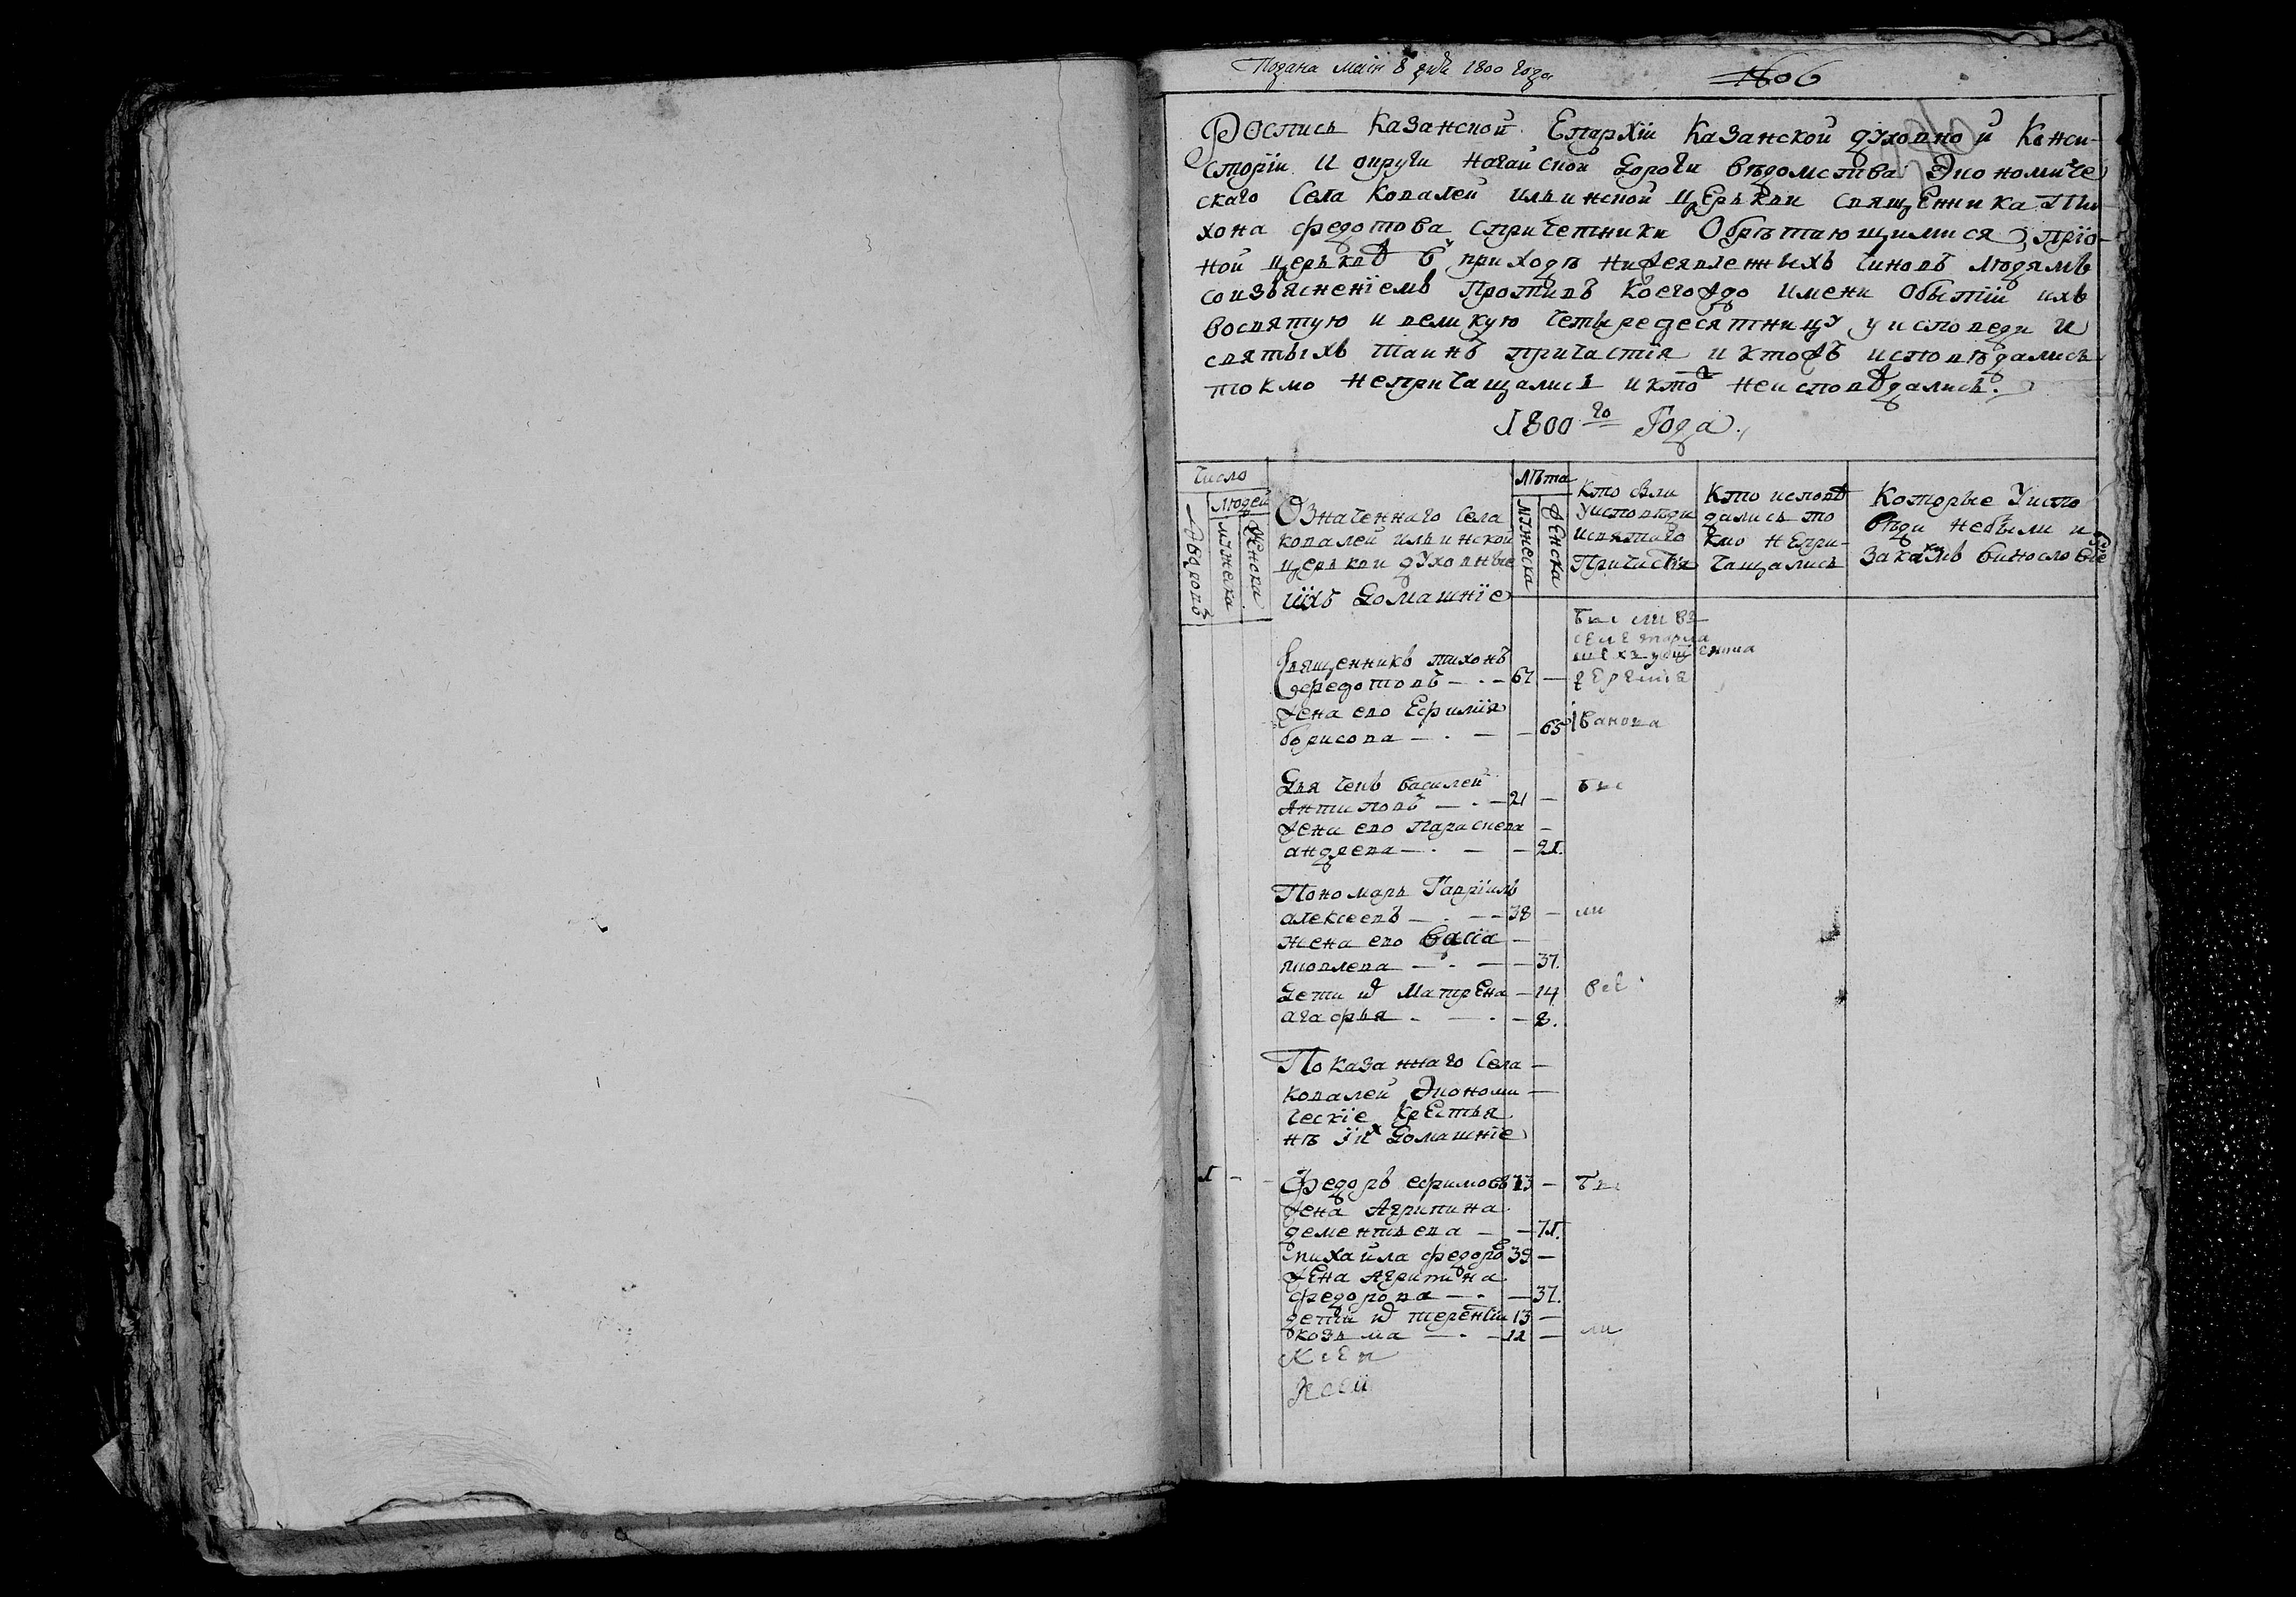 Подана маiя 8 дня 1800 года
1606
Роспись Казанской Епархiи Казанской духовной Конси-
сторiи и округи нагайской дороги вѣдомства Экономиче
скаго Села Ковалей ильинской церькви священника Ти
хона федотова спричетники Обрѣтающимися при о-
ной церьквѣ в приходѣ нижеявленныхъ чиновъ людямъ
со изъясненiемъ противъ коегождо имени Обытiи ихъ
восвятую и великую четыредесятницу у исповеди и
святыхъ таинъ причастiя и ктожъ исповѣдались
токмо непричащались и кто неисповѣдались.
1800го Года.
Число
Дворовъ
людей
мужеска
женска
Означеннаго Села
ковалей ильинской
церькви духовные
iихъ Домашнiе
лѣта
мужеска
женска
Кто были
уисповѣди
исвятаго
Причастiя
Кто исповѣ
дались то
кмо непри-
чащались
Которые Уиспо
вѣди небыли и
Священникъ тихонъ
федотовъ — 67 —
жена ево Ефимiя
борисова — — 65
Iванова
Дьячекъ василей
Антиповъ — 21 —
жена ево Параскева —
андреева — — 21.
Пономарь Гаврiилъ
алексеевъ — 38 — ли
жена ево Васса —
яковлева — — 37.
Дети их Матрена — 14
агафья — — 8.
Показаннаго Села —
ковалей Экономи —
ческiе крестья
нѣ iих Домашнiе
1 - - Федоръ ефимовъ 73 — Бы
жена Агрипина
дементьева — — 71.
михайла федоро 39 —
жена Агрипина
федорова — — 37.
дети их терентiи 13 —
козьма — 11 — ли